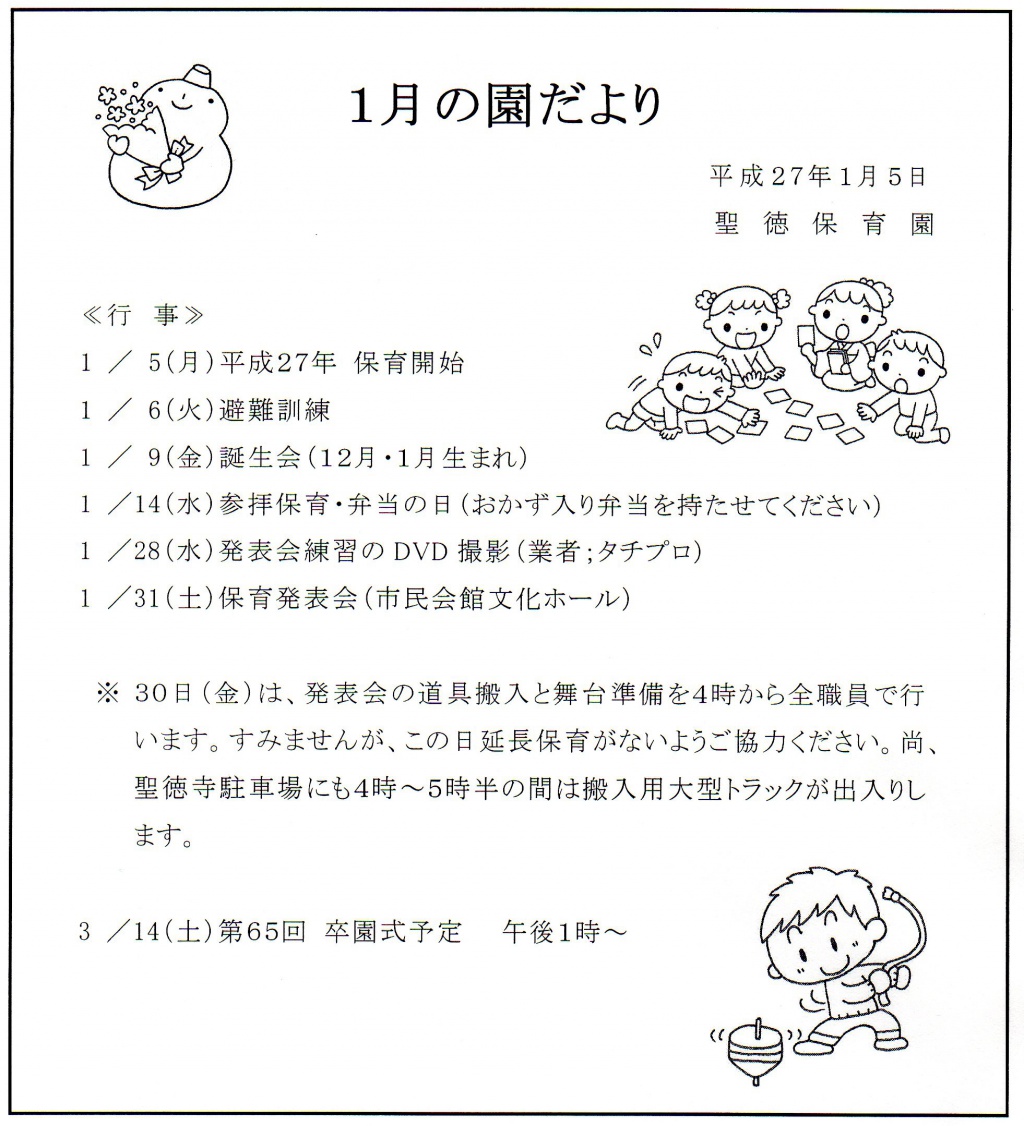 1月の園だより
平成27年1月5日
聖徳保育園
≪行 事≫
1 / 5(月)平成27年 保育開始
1 / 6(火)避難訓練
1 / 9(金)誕生会(12月・1月生まれ)
1 /14(水)参拝保育・弁当の日(おかず入り弁当を持たせてください)
1 /28(水)発表会練習のDVD撮影(業者;タチプロ)
1 /31(土)保育発表会(市民会館文化ホール)
※ 30日(金)は、発表会の道具搬入と舞台準備を4時から全職員で行
います。すみませんが、この日延長保育がないようご協力ください。尚、
聖徳寺駐車場にも4時～5時半の間は搬入用大型トラックが出入りし
ます。
3 /14(土)第65回 卒園式予定 午後1時～